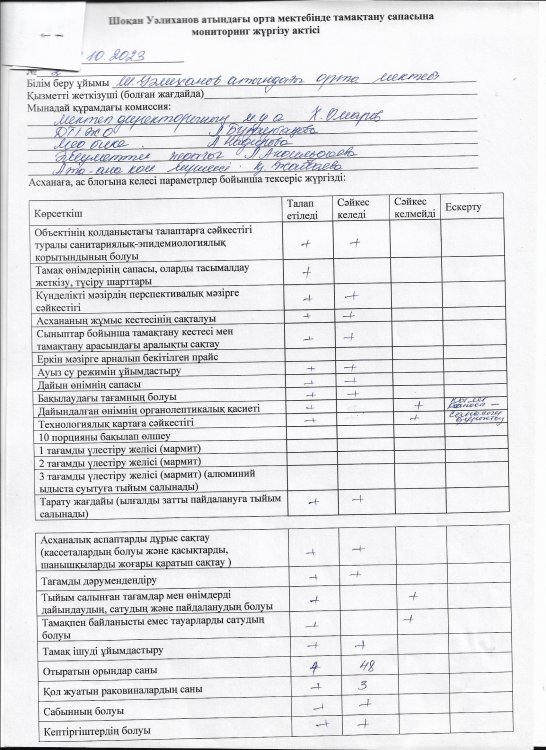 Шоқан Уәлиханов атындағы орта мектебінде тамақтану сапасына
мониторинг жүргізу актісі
10.2023
№ 2
Білім беру ұйымы Ш Уәлиханов атындағы орта мектебі
Қызметті жеткізуші (болған жағдайда)
Мынадай құрамдағы комиссия:
Мектеп директорының м.у.о Қ. Омаров
Әлеуметтік педагог
Ата-ана
Асханаға, ас блогына келесі параметрлер бойынша тексеріс жүргізді:
Көрсеткіш Талап етіледі Сәйкес келеді Сәйкес келмейді Ескерту
Объектінің қолданыстағы талаптарға сәйкестігі
туралы санитариялық-эпидемиологиялық + +
қорытындының болуы
Тамақ өнімдерінің сапасы, оларды тасымалдау +
жеткізу, түсіру шарттары
Күнделікті мәзірдің перспективалық мәзірге + +
сәйкестігі
Асхананың жұмыс кестесінің сақталуы + +
Сыныптар бойынша тамақтану кестесі мен + +
тамақтану арасындағы аралықты сақтау
Еркін мәзірге арналып бекітілген прайс
Ауыз су режимін ұйымдастыру + +
Дайын өнімнің сапасы + +
Бақылаудағы тағамның болуы + +
Дайындалған өнімнің органолептикалық қасиеті + +
Технологиялық картаға сәйкестігі + +
10 порцияны бақылап өлшеу
1 тағамды үлестіру желісі (мармит)
2 тағамды үлестіру желісі (мармит)
3 тағамды үлестіру желісі (мармит) (алюминий
ыдыста суытуға тыйым салынады)
Тарату жағдайы (ылғалды затты пайдалануға тыйым + +
салынады)
Асханалық аспаптарды дұрыс сақтау
(кассеталардың болуы және қасықтарды, + +
шанышқыларды жоғары қаратып сақтау )
Тағамды дәрумендендіру + +
Тыйым салынған тағамдар мен өнімдерді + +
дайындаудың, сатудың және пайдаланудың болуы
Тамақпен байланысты емес тауарларды сатудың + +
болуы
Тамақ ішуді ұйымдастыру + +
Отыратын орындар саны + 48
Қол жуатын раковиналардың саны + 3
Сабынның болуы + +
Кептіргіштердің болуы + +